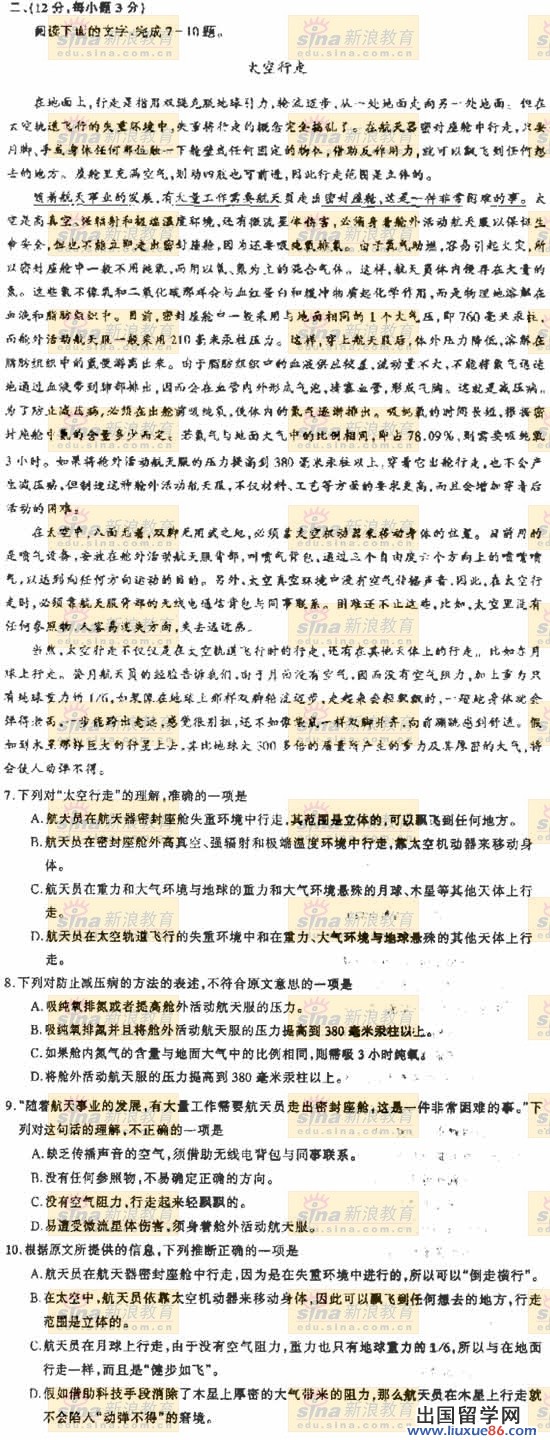 二、(12分,每小题3分)
阅读下面的文字,完成7-10题。
太空行走
在地面上,行走是指用双腿克服地球引力,轮流迈步,从一处地面走向另一处地面。但在
太空轨道飞行的失重环境中,失重将行走的概念完全搞乱了。在航天器密封座舱中行走,只要
用脚、手或身体任何部位触一下舱壁或任何固定的物体,借助反作用力,就可以飘飞到任何想
去的地方。座舱里充满空气,划动四肢也可前进,因此行走范围是立体的。
随着航天事业的发展,有大量工作需要航天员走出密封座舱,这是一件非常困难的事。太
空是高真空、强辐射和极端温度环境,还有微流星体伤害,必须身着舱外活动航天服以保证生
命安全,但也不能立即走出密封座舱,因为还要吸纯氧排氮。由于氧气助燃,容易引起火灾,所
以密封座舱中一般不用纯氧,而用以氮、氧为主的混合气体。这样,航天员体内便存在大量的
氮。这些氮不像氧和二氧化碳那样会与血红蛋白和缓冲物质起化学作用,而是物理地溶解在
血液和脂肪组织中。目前,密封座舱中一般采用与地面相同的1个大气压,即760毫米汞柱,
而舱外活动航天服一般采用210毫米汞柱压力。这样,穿上航天服后,体外压力降低,溶解在
脂肪组织中的氮便游离出来。由于脂肪组织中的血液供应较差,流动量不大,不能将氮气迅速
地通过血液带到肺部排出,因而会在血管内外形成气泡,堵塞血管,形成气胸。这就是减压病。
为了防止减压病,必须在出舱前吸纯氧,使体内的氮气逐渐排出。吸纯氧的时间长短,根据密
封座舱中氮的含量多少而定。若氮气与地面大气中的比例相同,即占78.09%,则需要吸纯氧
3小时。如果将舱外活动航天服的压力提高到380毫米汞柱以上,穿着它出舱行走,也不会产
生减压病,但制造这种舱外活动航天服,不仅材料、工艺等方面的要求更高,而且会增加穿着后
活动的困难。
在太空中,八面无着,双脚无用武之地,必须靠太空机动器来移动身体的位置。目前用的
是喷气设备,安放在舱外活动航天服背部,叫喷气背包,通过三个自由度六个方向上的喷嘴喷
气,以达到向任何方向运动的目的。另外,太空真空环境中没有空气传播声音,因此,在太空行
走时,必须靠航天服背部的无线电通信背包与同事联系。困难还不止这些,比如,太空里没有
任何参照物,人容易迷失方向,失去远近感。
当然,太空行走不仅仅是在太空轨道飞行时的行走,还有在其他天体上的行走。比如在月
球上行走。登月航天员的经验告诉我们,由于月面没有空气,因而没有空气阻力,加上重力只
有地球重力的1/6,如果像在地球上那样双脚轮流迈步,走起来会轻飘飘的,一蹬地身体就会
弹得老高,一步能跨出老远,感觉很别扭,还不如像袋鼠一样双脚并齐,向前蹦跳感到舒适。假
如到木星那样巨大的行星上去,其比地球大300多倍的质量所产生的重力及其厚密的大气,将
会使人动弹不得。
7.下列对“太空行走”的理解,准确的一项是
A.航天员在航天器密封座舱失重环境中行走,其范围是立体的,可以飘飞到任何地方。
B.航天员在密封座舱外高真空、强辐射和极端温度环境中行走,靠太空机动器来移动身
体。
C.航天员在重力和大气环境与地球的重力和大气环境悬殊的月球、木星等其他天体上行
走。
D.航天员在太空轨道飞行的失重环境中和在重力、大气环境与地球悬殊的其他天体上行
走。
8.下列对防止减压病的方法的表述,不符合原文意思的一项是
A.吸纯氧排氮或者提高舱外活动航天服的压力。
B.吸纯氧排氮并且将舱外活动航天服的压力提高到380毫米汞柱以上。
C.如果舱内氮气的含量与地面大气中的比例相同,则需吸3小时纯氧。
D.将舱外活动航天服的压力提高到380毫米汞柱以上。
9.“随着航天事业的发展,有大量工作需要航天员走出密封座舱,这是一件非常困难的事。”下
列对这句话的理解,不正确的一项是
A.缺乏传播声音的空气,须借助无线电背包与同事联系。
B.没有任何参照物,不易确定正确的方向。
C.没有空气阻力,行走起来轻飘飘的。
D.易遭受微流星体伤害,须身着舱外活动航天服。
10.根据原文所提供的信息,下列推断正确的一项是
A.航天员在航天器密封座舱中行走,因为是在失重环境中进行的,所以可以“倒走横行”。
B.在太空中,航天员依靠太空机动器来移动身体,因此可以飘飞到任何想去的地方,行走
范围是立体的。
C.航天员在月球上行走,由于没有空气阻力,重力也只有地球重力的1/6,所以与在地面
行走一样,而且是“健步如飞”。
D.假如借助科技手段消除了木星上厚密的大气带来的阻力,那么航天员在木星上行走就
不会陷入“动弹不得”的窘境。
出国留学网
www.liuxue86.com